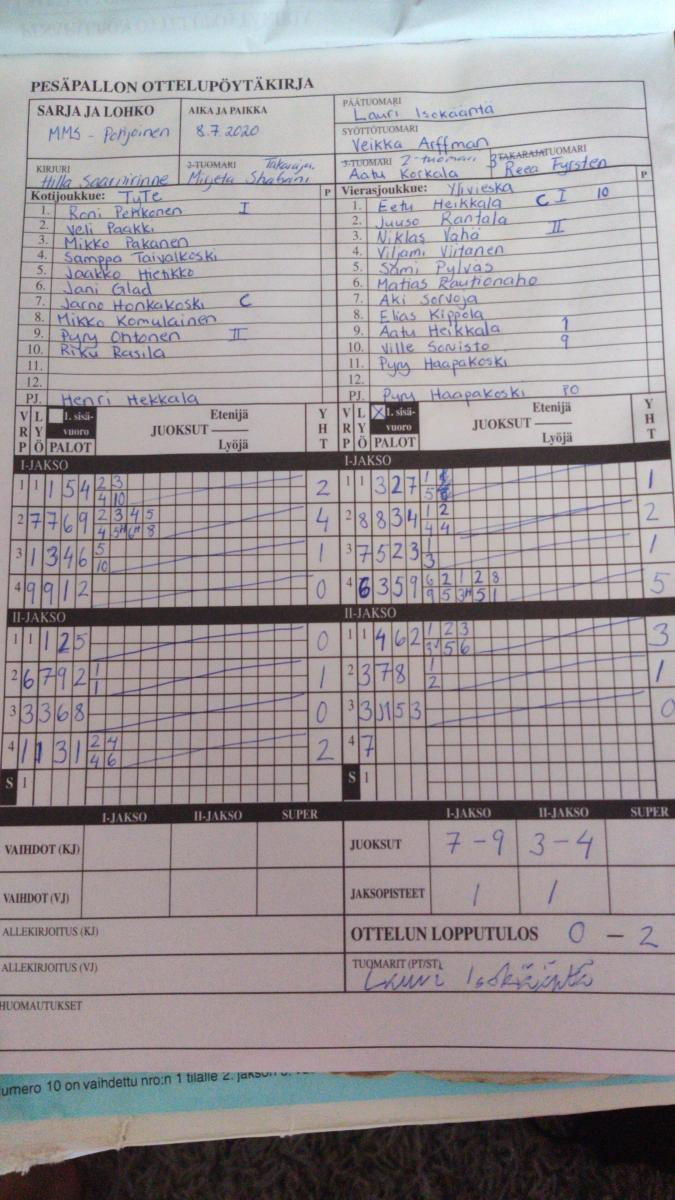 PESÄPALLON OTTELUPÖYTÄKIRJA
SARJA JA LOHKO
MMS - Pohjoinen
AIKA JA PAIKKA
8.7.2020
PÄÄTUOMARI
Lauri Isokääntä
SYÖTTÖTUOMARI
Veikka Arffman
KIRJURI
Hilla Saaririnne
2-TUOMARI Takaraja.
Mirjeta Shabani
3-TUOMARI 2-tuomari
Aatu Korkala
3 TAKARAJATUOMARI
Reea Fyrsten
Kotijoukkue: TyTe P
1. Roni Pekkonen I
2. Veli Paakki
3. Mikko Pakanen
4. Samppa Taivalkoski
5. Jaakko Hietikko
6. Jani Glad
7. Jarno Honkakoski C
8. Mikko Komulainen
9. Pyry Ohtonen II
10. Riku Rasila
11.
12.
PJ. Henri Hekkala
Vierasjoukkue: Ylivieska P
1. Eetu Heikkala C I 10
2. Juuso Rantala
3. Niklas Vähä II
4. Viljami Virtanen
5. Sami Pylväs
6. Matias Rautionaho
7. Aki Sorvoja
8. Elias Kippola
9. Aatu Heikkala 1
10. Ville Sorvisto 9
11. Pyry Haapakoski
12.
PJ. Pyry Haapakoski PO
VRP LYÖ 1. sisävuoro PALOT JUOKSUT Etenijä Lyöjä YHT
I-JAKSO
1 1 1 5 4 2 3 2
4 10
2 7 7 6 9 2 3 4 5 4
4 5 6 8
3 1 3 4 6 5 1
10
4 9 9 1 2 0
II-JAKSO
1 1 1 2 5 0
2 6 7 9 2 1 1
1
3 3 3 6 8 0
4 1 1 3 1 2 4 2
4 6
S 1
VRP LYÖ X 1. sisävuoro PALOT JUOKSUT Etenijä Lyöjä YHT
I-JAKSO
1 1 3 2 7 1 1
5
2 8 8 3 4 1 2 2
4 4
3 7 5 2 3 1 1
3
4 6 3 5 9 6 2 1 2 8 5
9 5 3 5 1
II-JAKSO
1 1 4 6 2 1 2 3 3
3 5 6
2 3 7 8 1 1
2
3 3 1 5 3 0
4 7
S 1
I-JAKSO II-JAKSO SUPER
VAIHDOT (KJ)
VAIHDOT (VJ)
I-JAKSO II-JAKSO SUPER
JUOKSUT 7-9 3-4
JAKSOPISTEET 1 1
ALLEKIRJOITUS (KJ)
OTTELUN LOPPUTULOS 0 - 2
ALLEKIRJOITUS (VJ)
TUOMARIT (PT/ST)
Lauri Isokääntä
HUOMAUTUKSET
umero 10 on vaihdettu nro:n 1 tilalle 2. jakson